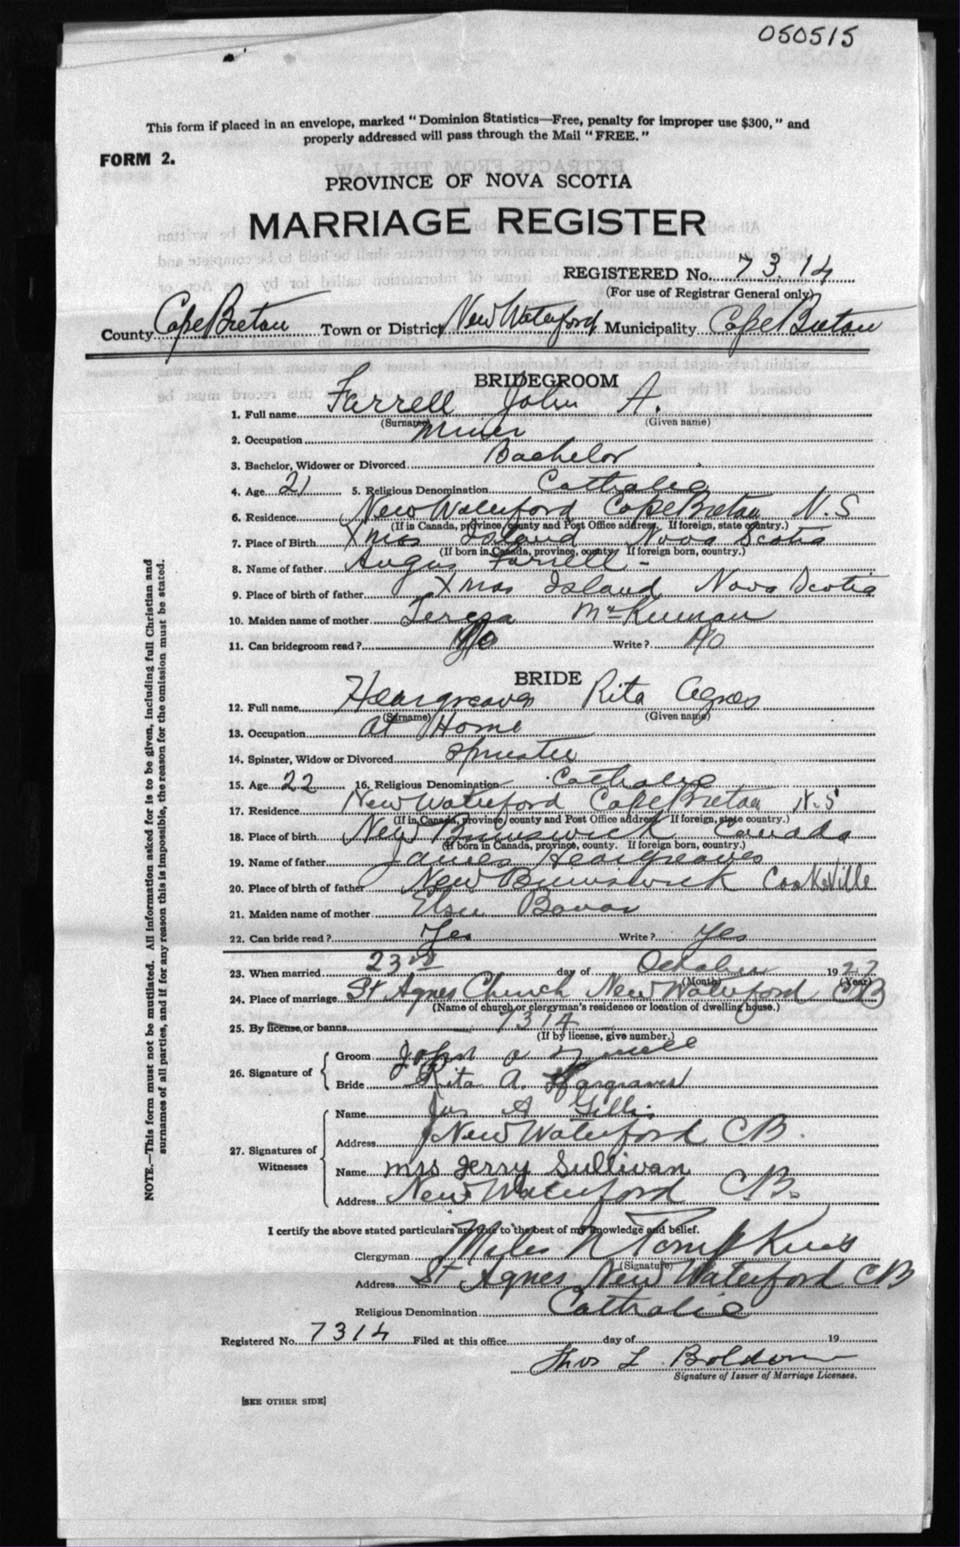 050515
This form if placed in an envelope, marked "Dominion Statistics—Free, penalty for improper use $300," and
properly addressed will pass through the Mail "FREE."
FORM 2.
PROVINCE OF NOVA SCOTIA
MARRIAGE REGISTER
REGISTERED No. 7314
(For use of Registrar General only)
County Cape Breton Town or District New Waterford Municipality Cape Breton
BRIDEGROOM
1. Full name Farrell John A.
(Surname) (Given name)
2. Occupation Miner
3. Bachelor, Widower or Divorced Bachelor
4. Age 21 5. Religious Denomination Catholic
6. Residence New Waterford Cape Breton N.S
(If in Canada, province, county and Post Office address. If foreign, state country.)
7. Place of Birth Xmas Island Nova Scotia
(If born in Canada, province, county. If foreign born, country.)
8. Name of father Angus Farrell -
9. Place of birth of father Xmas Island Nova Scotia
10. Maiden name of mother Teresa McKinnon
11. Can bridegroom read? No Write? No
BRIDE
12. Full name Heargreaves Rita Agnes
(Surname) (Given name)
13. Occupation at Home
14. Spinster, Widow or Divorced Spinster
15. Age 22 16. Religious Denomination Catholic
17. Residence New Waterford Cape Breton N.S
(If in Canada, province/county and Post Office address. If foreign, state country.)
18. Place of birth New Brunswick Canada
(If born in Canada, province, county. If foreign born, country.)
19. Name of father James Heargreaves
20. Place of birth of father New Brunswick
21. Maiden name of mother Elsie
22. Can bride read? Yes Write? Yes
23. When married 23rd day of October 1927
(Month) (Year)
24. Place of marriage St Agnes Church New Waterford CB
(Name of church or clergyman's residence or location of dwelling house.)
25. By license, or banns 7314
(If by license, give number.)
26. Signature of
Groom John A
Bride Rita A. Hargraves
27. Signatures of Witnesses
Name Jas A Gillis
Address New Waterford CB.
Name Mrs Jerry Sullivan
Address New Waterford CB.
I certify the above stated particulars are true to the best of my knowledge and belief.
Clergyman Myles N Tompkins
(Signature)
Address St Agnes New Waterford CB
Religious Denomination Catholic
Registered No. 7314 Filed at this office day of 19
Thos L.
Signature of Issuer of Marriage Licenses.
[SEE OTHER SIDE]
NOTE.—This form must not be mutilated. All information asked for is to be given, including full Christian and
surnames of all parties, and if for any reason this is impossible, the reason for the omission must be stated.